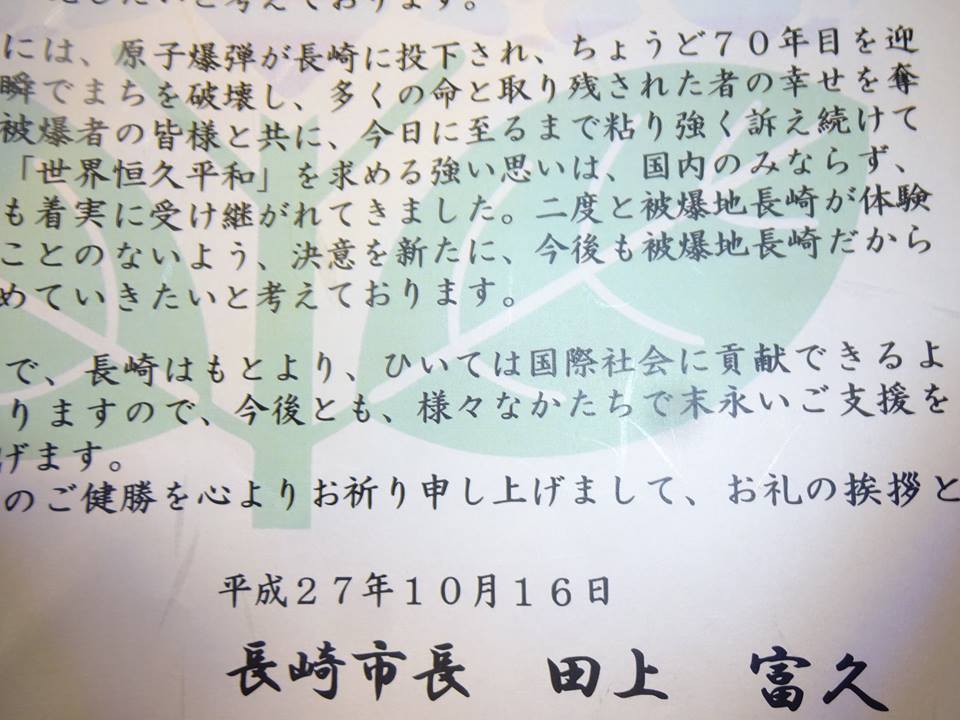 したいと考えております。
には、原子爆弾が長崎に投下され、ちょうど７０年目を迎
瞬でまちを破壊し、多くの命と取り残された者の幸せを奪
被爆者の皆様と共に、今日に至るまで粘り強く訴え続けて
「世界恒久平和」を求める強い思いは、国内のみならず、
も着実に受け継がれてきました。二度と被爆地長崎が体験
ことのないよう、決意を新たに、今後も被爆地長崎だから
めていきたいと考えております。
で、長崎はもとより、ひいては国際社会に貢献できるよ
りますので、今後とも、様々なかたちで末永いご支援を
げます。
のご健勝を心よりお祈り申し上げまして、お礼の挨拶と
平成２７年１０月１６日
長崎市長　田上　富久